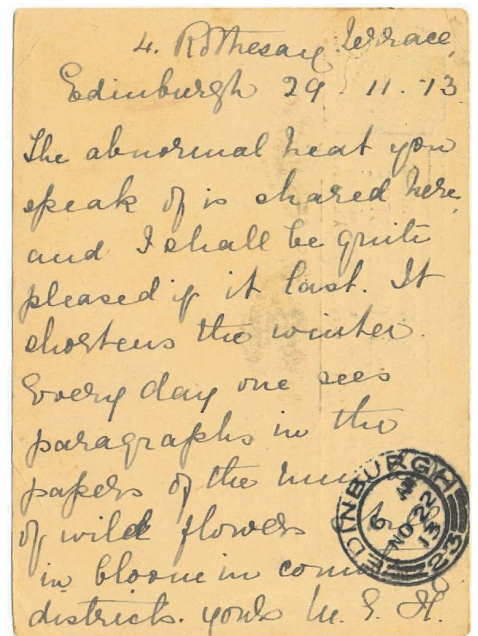 4. Rothesay Terrace,
Edinburgh 29 11. 13
The abnormal heat you
speak of is shared here,
and I shall be quite
pleased if it last. It
shortens the winter.
Every day one sees
paragraphs in the
papers of the
of wild flowers
in bloom in
districts. yours M. E. H.
EDINBURGH
6
NO 22
13
23